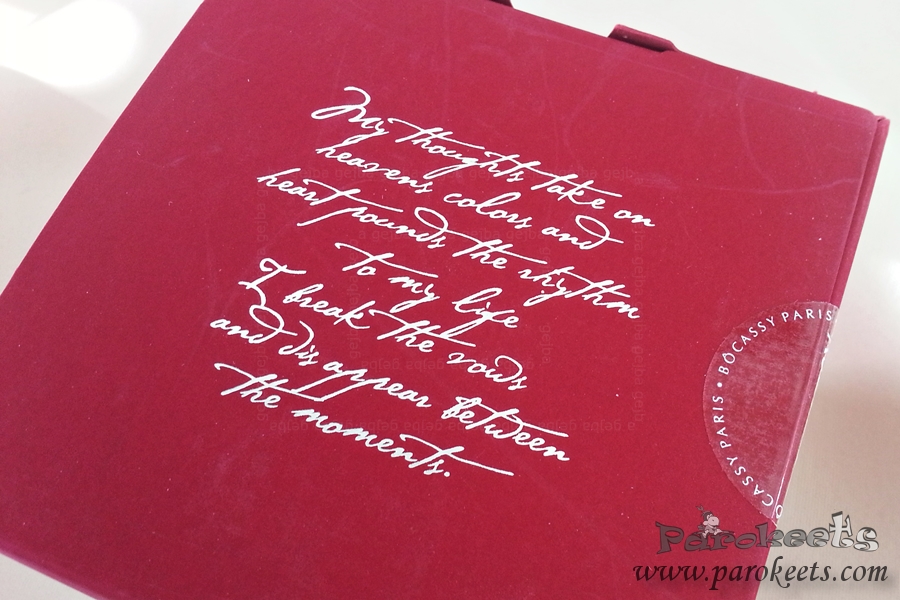 My thoughts take on
heavens colors and
heart pounds the rhythm
to my life
I break the vows
and dis appear between
the moments.
BÔCASSY PARIS • BÔCASSY PARIS
Parokeets
www.parokeets.com